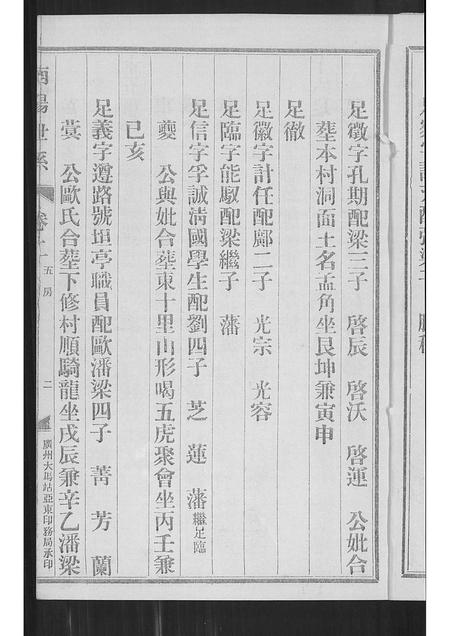 足徵字孔期配梁三子 啓辰 啓沃 啓運 公妣合
塟本村洞面土名孟角坐艮坤兼寅申
足徹
足徽字計任配鄺二子 光宗 光容
足臨字能馭配梁繼子 藩
足信字孚誠清國學生配劉四子 芝 蓮 藩繼足臨
夔 公與妣合塟東十里山形喝五虎聚會坐丙壬兼
巳亥
足義字遵路號坦亭職員配歐潘梁四子 菁 芳 蘭
蓂 公歐氏合塟下修村順騎龍坐戌辰兼辛乙潘梁
世系
卷十
五房
二
廣州大馬站亞東印務局承印